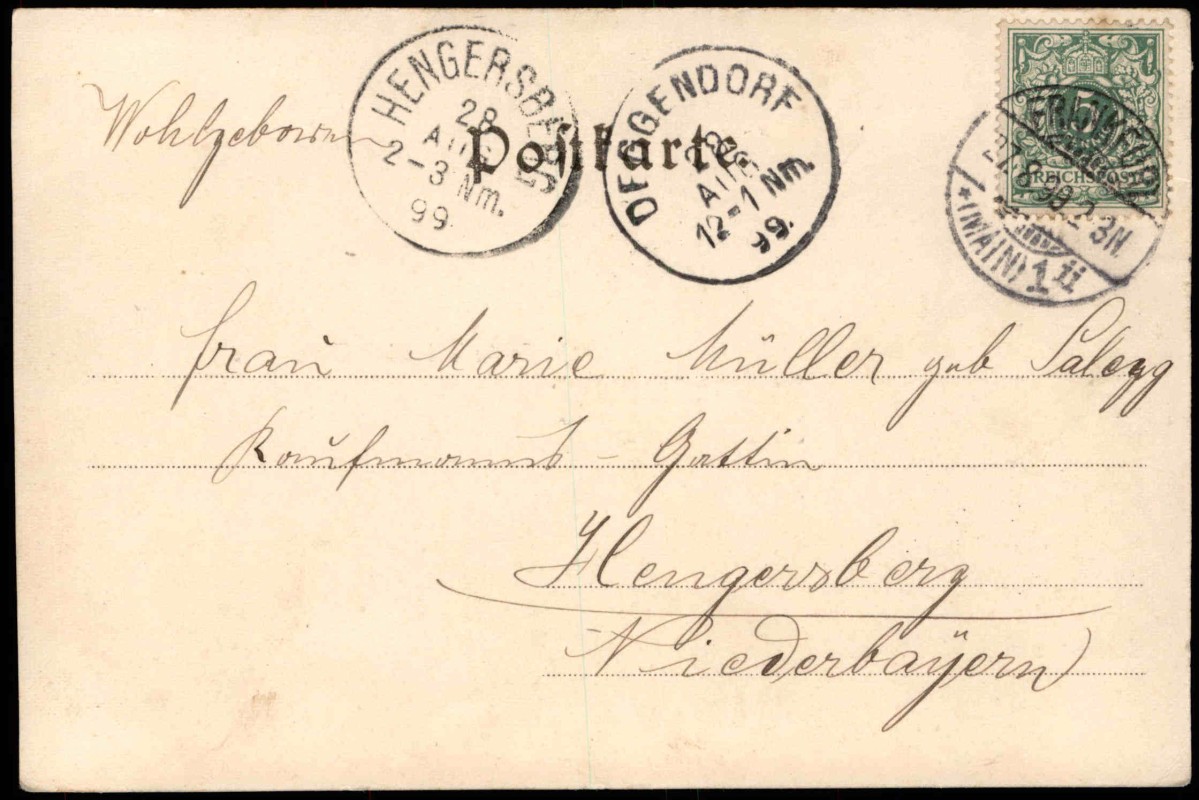 Wohlgeboren
HENGERSBERG
28
AUG
2-3 Nm.
99.
Postkarte.
DEGGENDORF
28
AUG
12-1 Nm.
99.
5
REICHSPOST
FRANKFURT
27.8.99 2-3N.
*(MAIN) 1 ii
Frau Marie Müller geb Salegg
Kaufmanns-Gattin
Hengersberg
Niederbayern